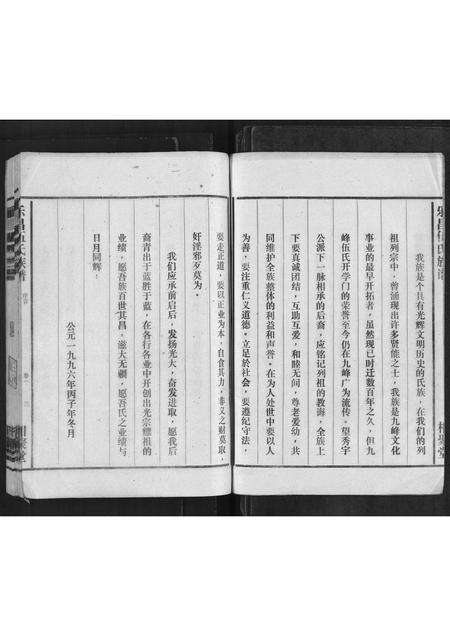 乐昌伍氏族谱
我族是个具有光辉文明历史的氏族，在我们的列
祖列宗中，曾涌现出许多贤能之士，我族是九峰文化
事业的最早开拓者，虽然现已时迁数百年之久，但九
峰伍氏开学门的荣誉至今仍在九峰广为流传。望秀宇
公派下一脉相承的后裔，应铭记列祖的教诲，全族上
下要真诚团结，互助互爱，和睦无间，尊老爱幼，共
同维护全族整体的利益和声誉。在为人处世中要以人
为善，要注重仁义道德。立足於社会，要遵纪守法，
要走正道，要以正业为本，自食其力，非义之财莫取，
奸淫邪歹莫为。
我们应承前启后，发扬光大，奋发进取，愿我后
裔青出于蓝胜于蓝，在各行各业中开创出光宗耀祖的
业绩，愿吾族百世其昌，滋大无疆，愿吾氏之业绩与
日月同辉。
公元一九九六年丙子年冬月